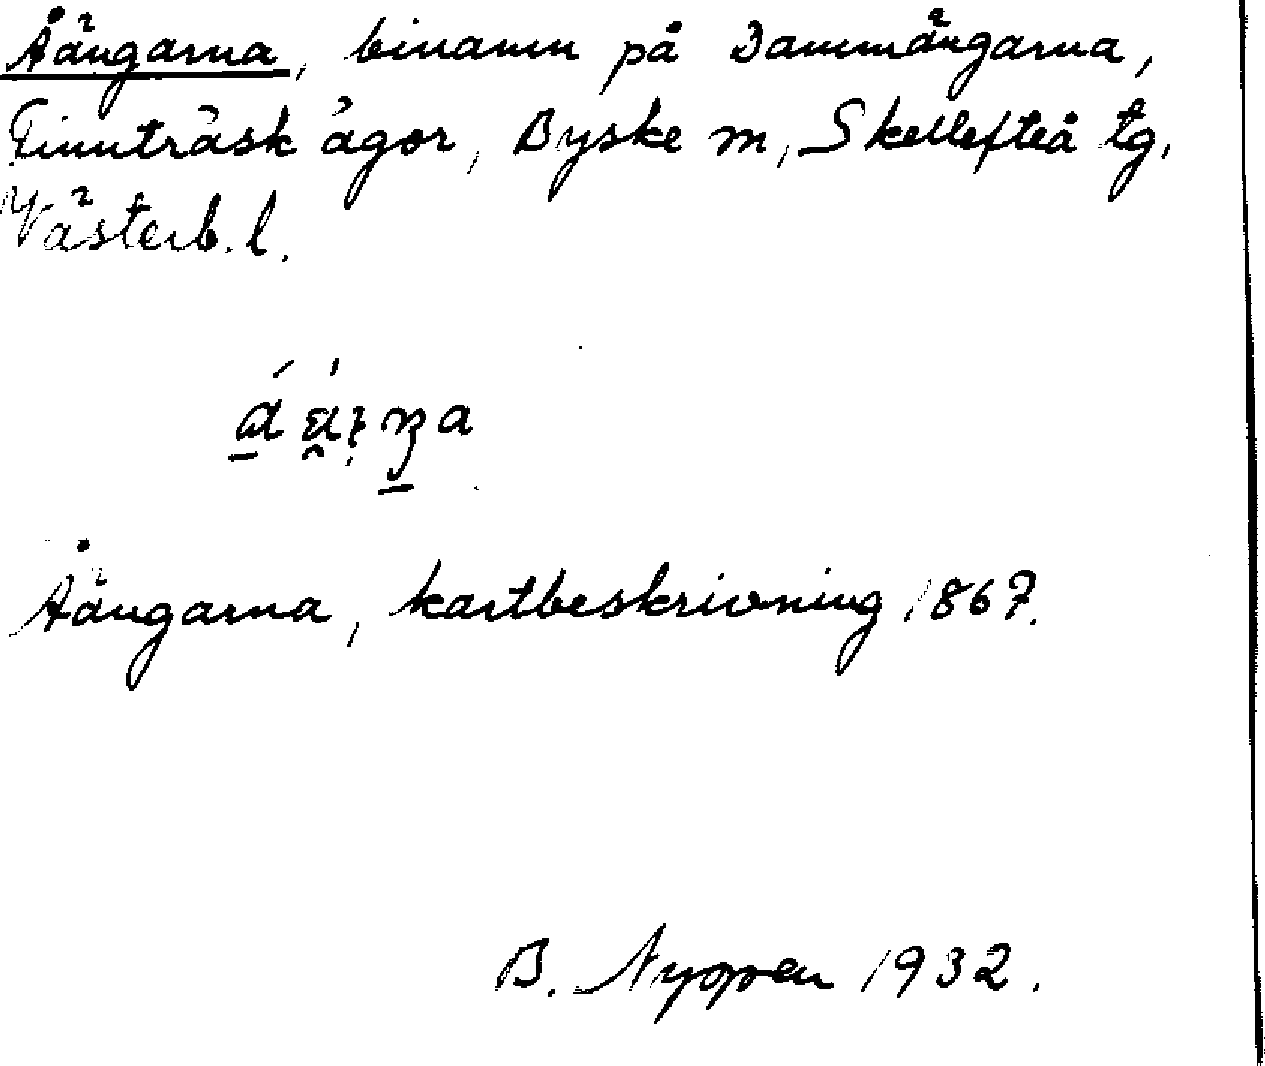 Åängarna, binamn på Dammängarna,
Finnträsk ägor, Byske sn, Skellefteå tg,
Västerb. l.
Åängarna, kartbeskrivning 1867.
B. 1932.